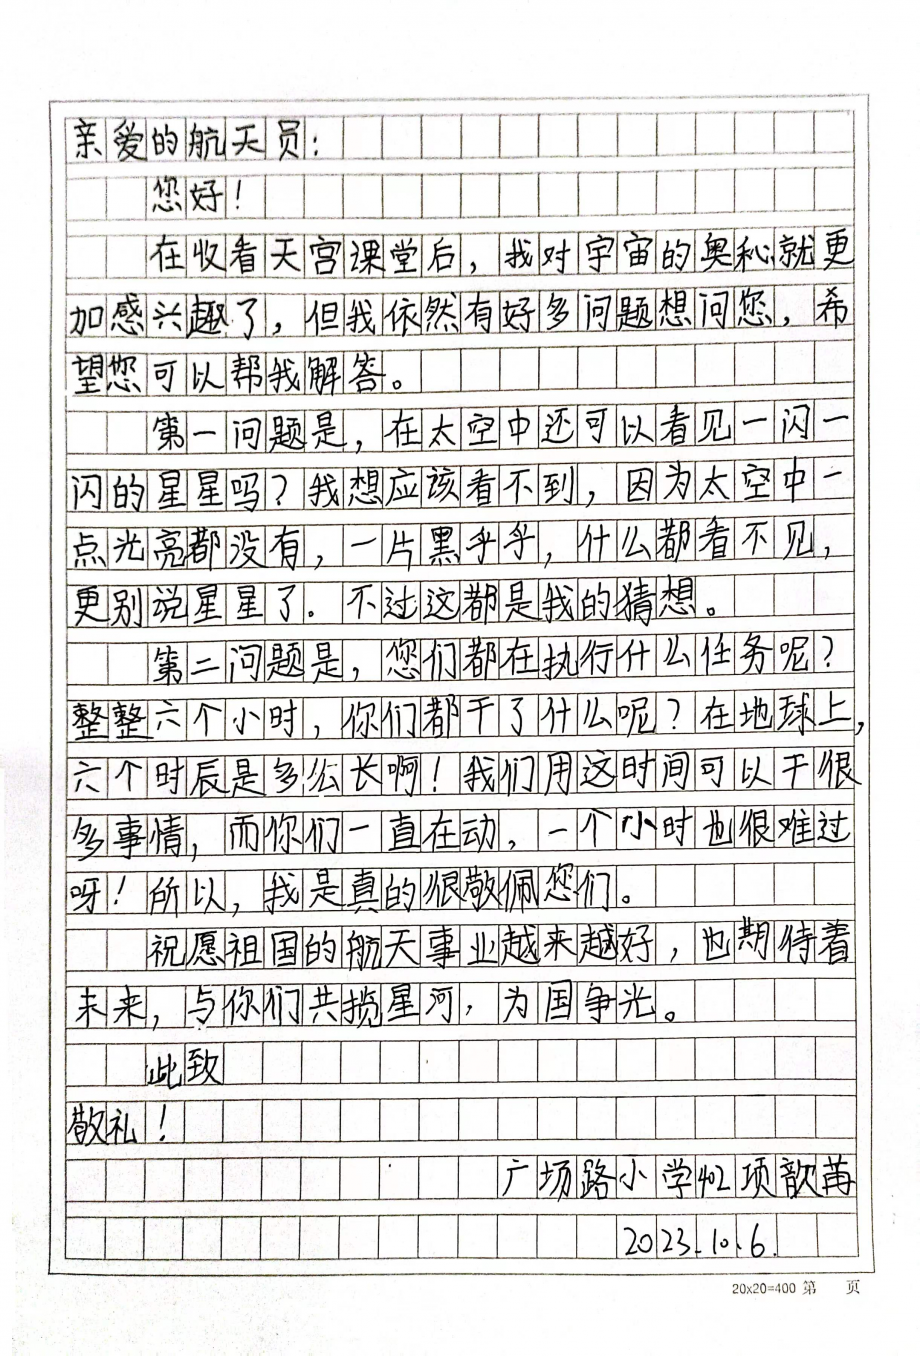 亲爱的航天员：
您好！
在收看天宫课堂后，我对宇宙的奥秘就更
加感兴趣了，但我依然有好多问题想问您，希
望您可以帮我解答。
第一问题是，在太空中还可以看见一闪一
闪的星星吗？我想应该看不到，因为太空中一
点光亮都没有，一片黑乎乎，什么都看不见，
更别说星星了。不过这都是我的猜想。
第二问题是，您们都在执行什么任务呢？
整整六个小时，你们都干了什么呢？在地球上，
六个时辰是多么长啊！我们用这时间可以干很
多事情，而你们一直在动，一个小时也很难过
呀！所以，我是真的很敬佩您们。
祝愿祖国的航天事业越来越好，也期待着
未来，与你们共揽星河，为国争光。
此致
敬礼！
广场路小学402项歆苒
2023.10.6.
20x20=400 第 页